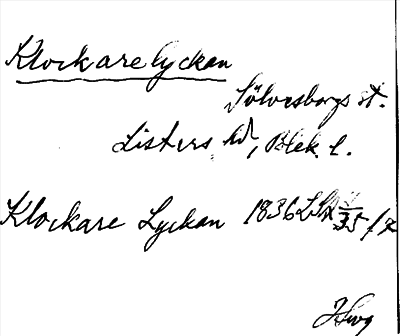 Klockarelyckan
Sölvesborgs st.
Listers hd, Blek. l.
Klockare Lyckan 1836 35/7